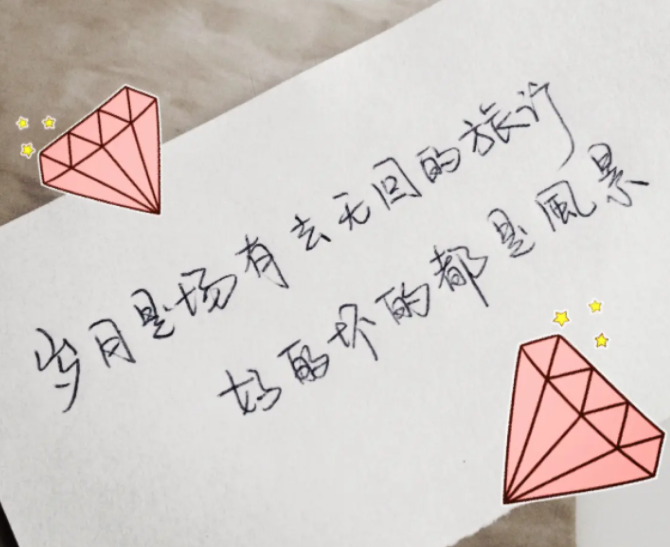 岁月是场有去无回的旅行
好的坏的都是風景